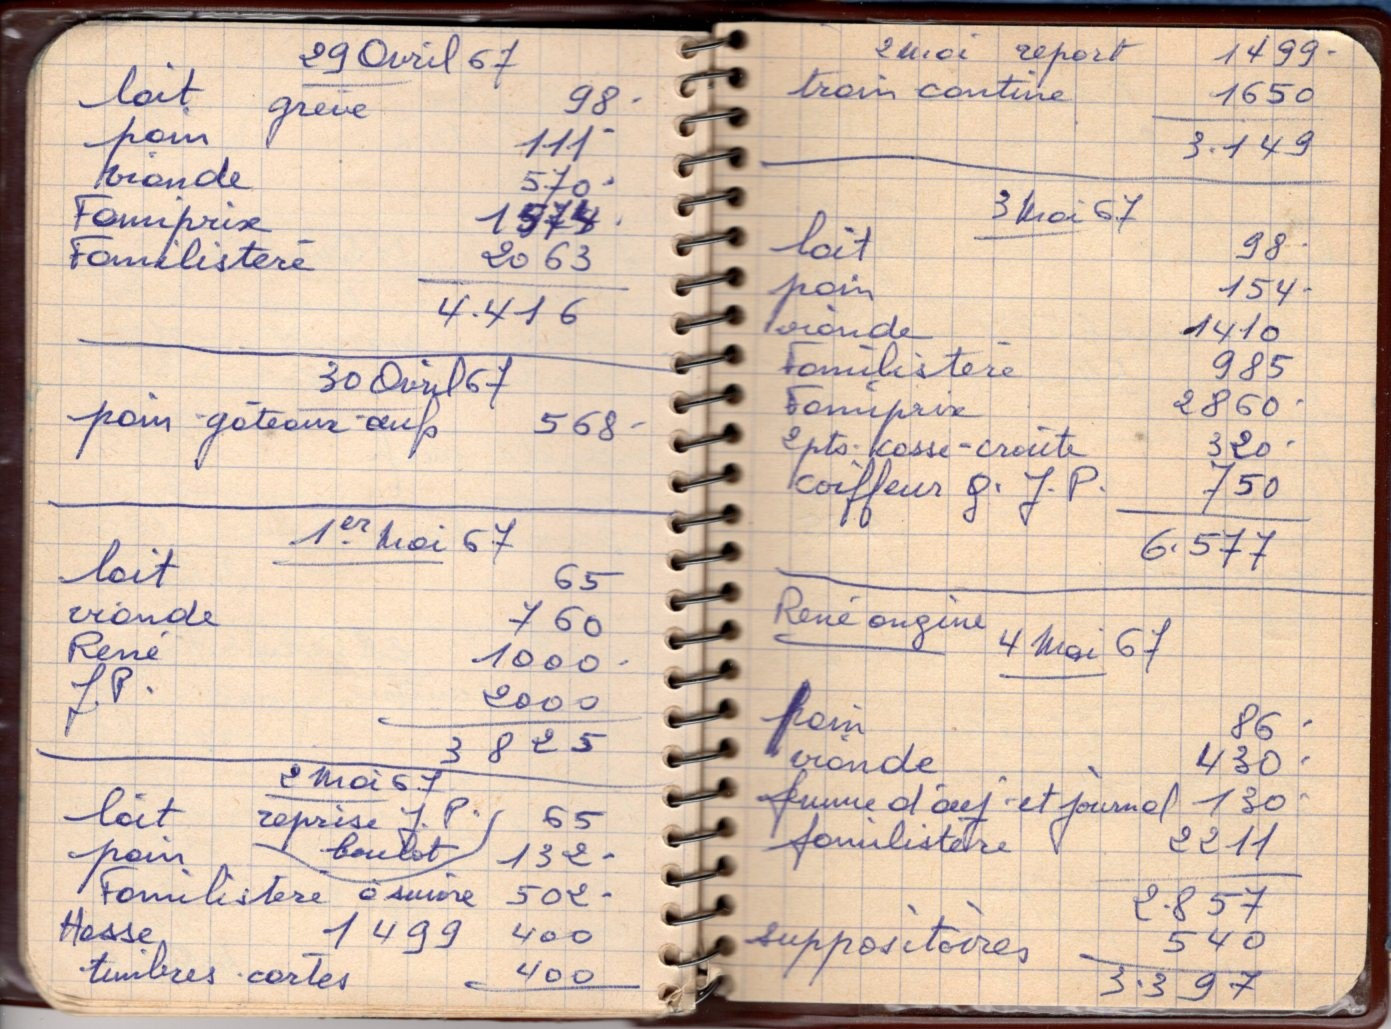 29 Avril 67
lait grève 98.
pain 111
viande 570.
Famiprix 1574.
Familistère 2063
4.416
30 Avril 67
pain-gâteaux-œufs 568-
1er Mai 67
lait 65
viande 760
René 1000.
J.P. 2000
3825
2 Mai 67
lait reprise J.P. 65
pain boulot 132.
Familistère à suivre 502.
Hasse 1499 400
timbres-cartes 400
2 Mai report 1499.
train cantine 1650
3.149
3 Mai 67
lait 98.
pain 154.
viande 1410
Familistère 985
Famiprix 2860.
2 pts. casse-croûte 320.
coiffeur g. J.P. 750
6.577
René angine
4 Mai 67
pain 86.
viande 430.
d'œuf et journal 130.
familistère 2211
2.857
suppositoires 540
3.397